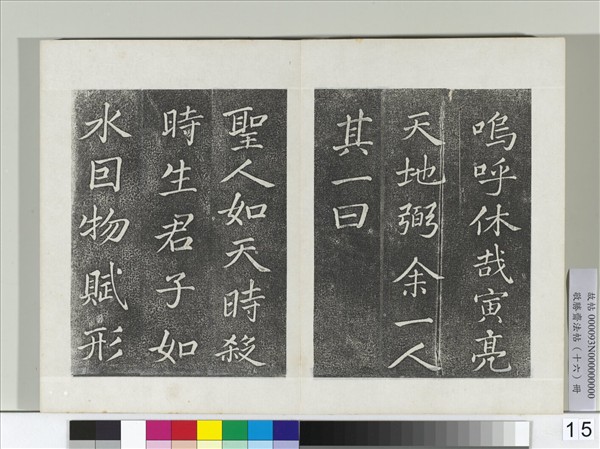 嗚呼休哉寅亮
天地弼余一人
其一曰
聖人如天時殺
時生君子如
水因物賦形
故帖000093N000000000
敬勝齋法帖（十六）冊
15